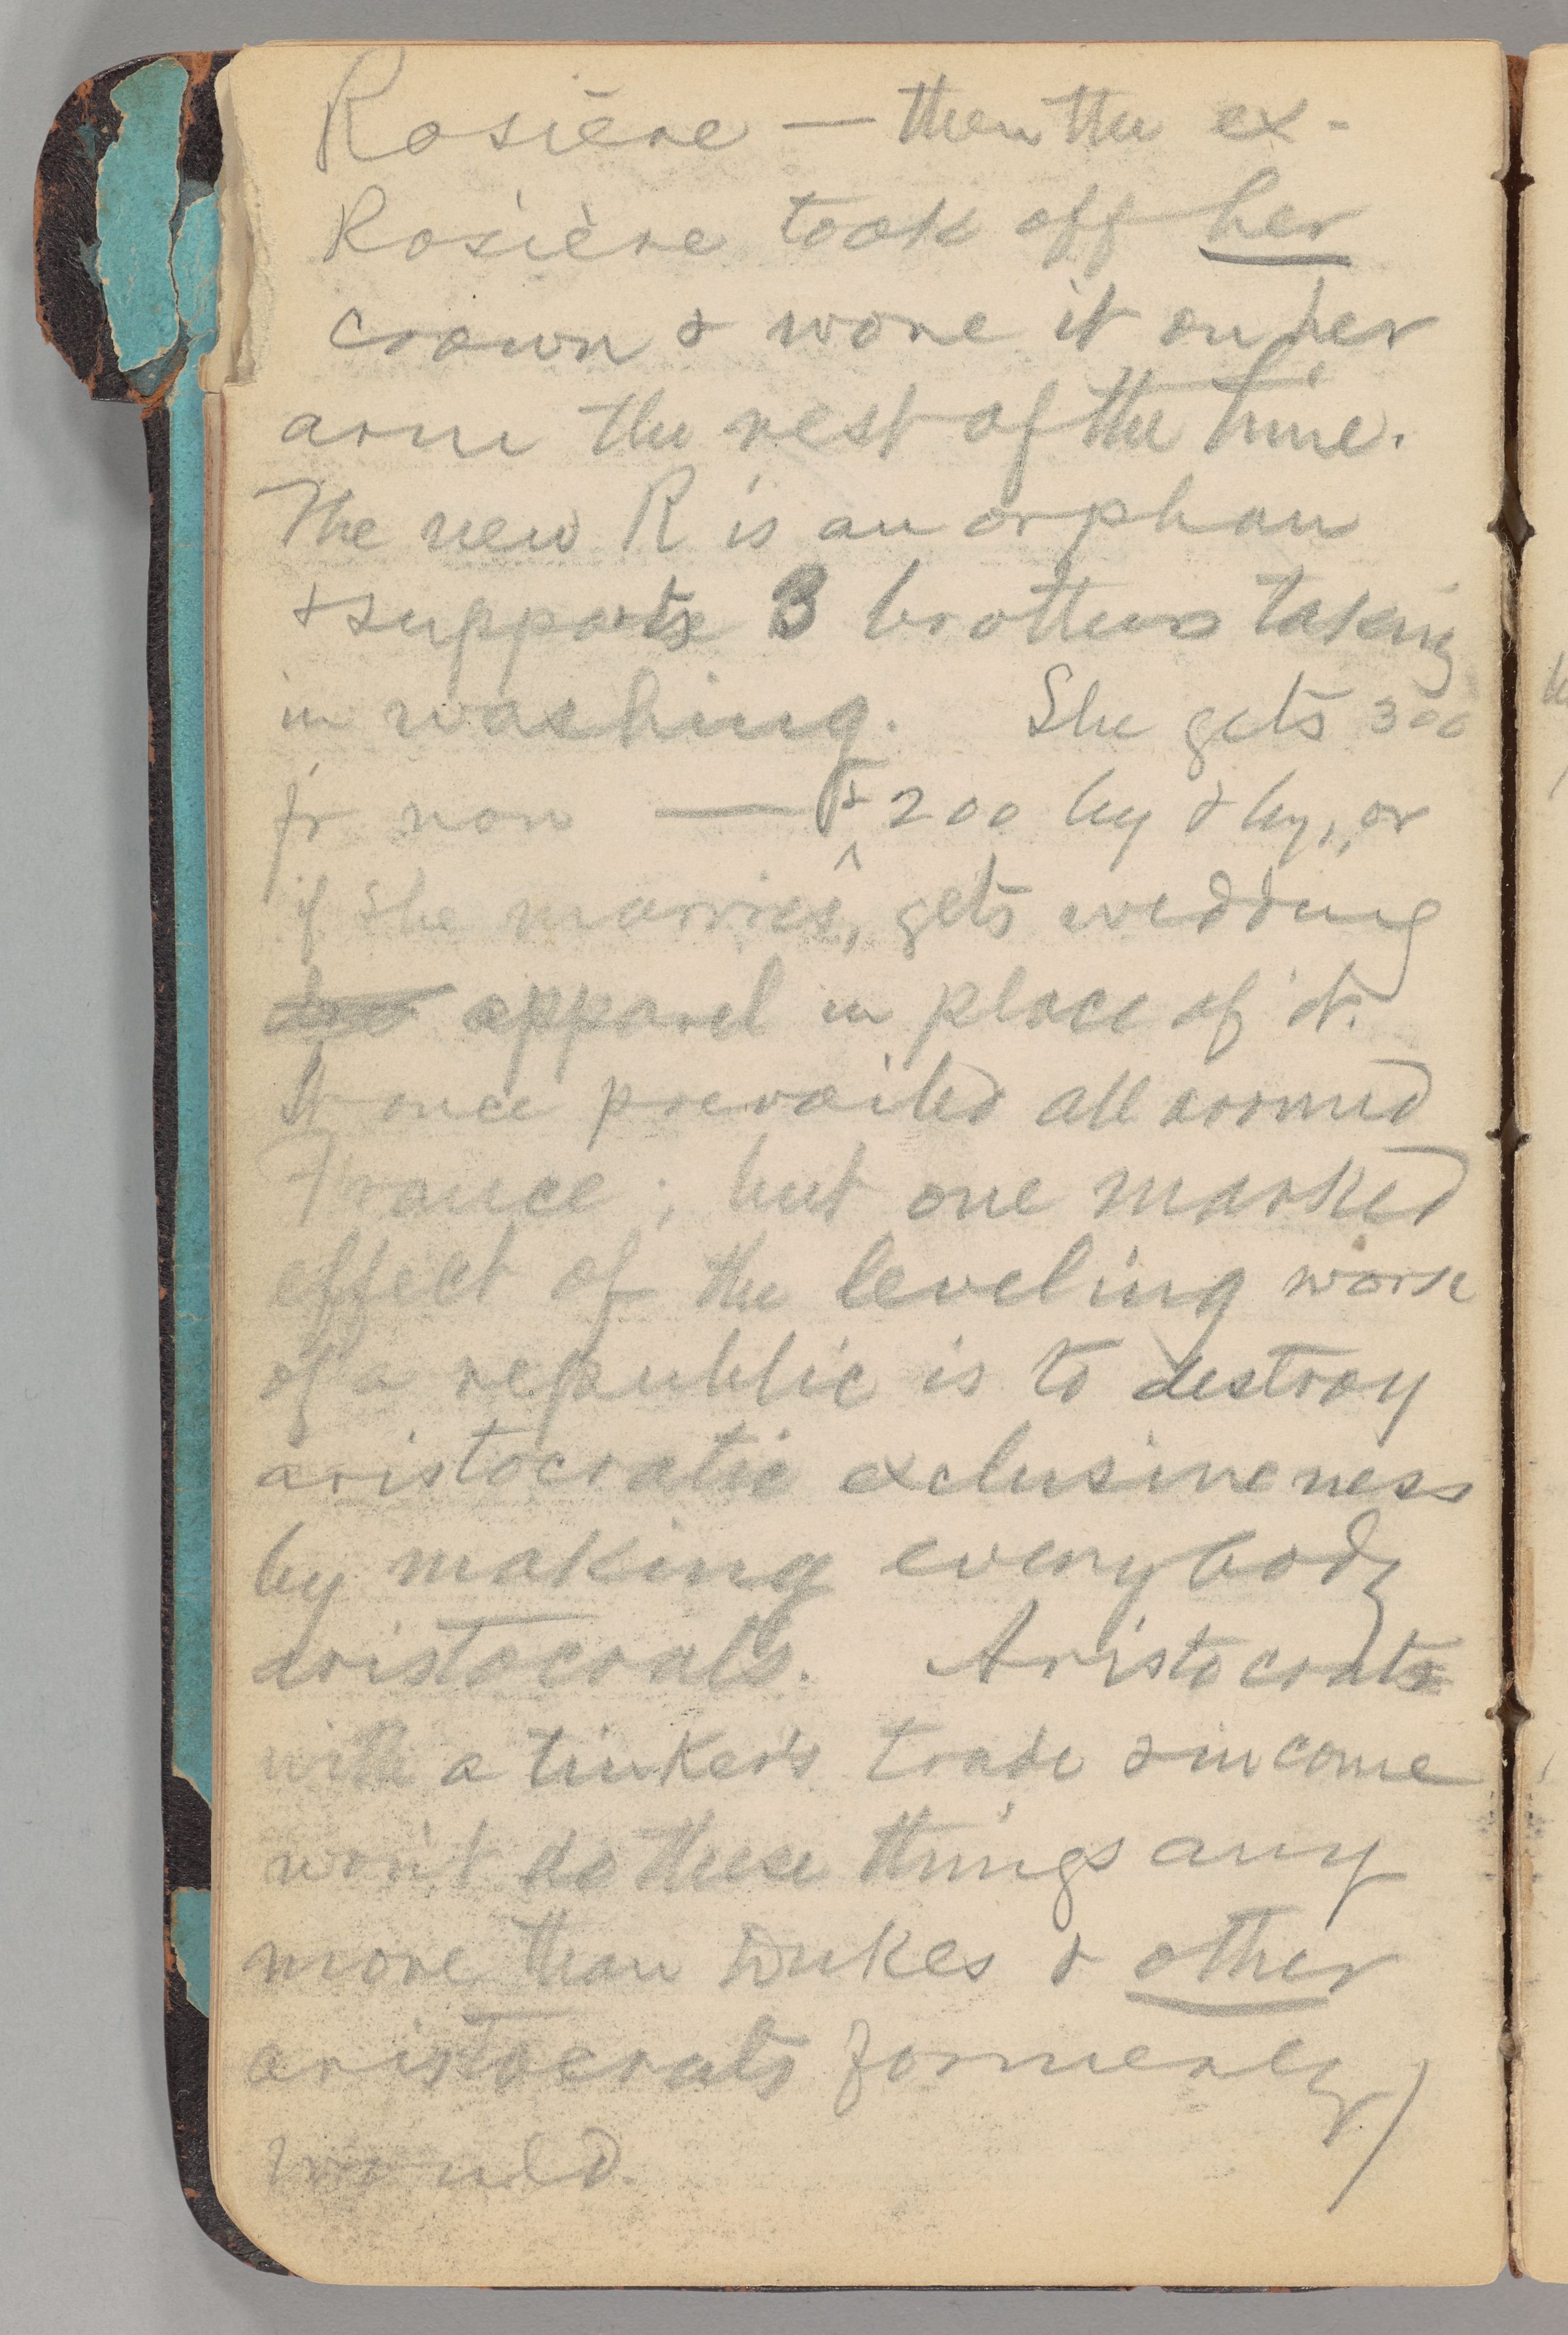 Rosière — then the ex-
Rosière took off her
crown & wore it on her
arm the rest of the time.
The new R is an orphan
& supports 3 brothers taking
in washing. She gets 300
fr now — & 200 by & by, or
if she marries, gets wedding
apparel in place of it.
It once prevailed all around
France; but one marked
effect of the leveling work
of a republic is to destroy
aristocratic exclusiveness
by making everybody
aristocrats. Aristocrats
with a tinker's trade & income
won't do these things any
more than Dukes & other
aristocrats formerly
would.